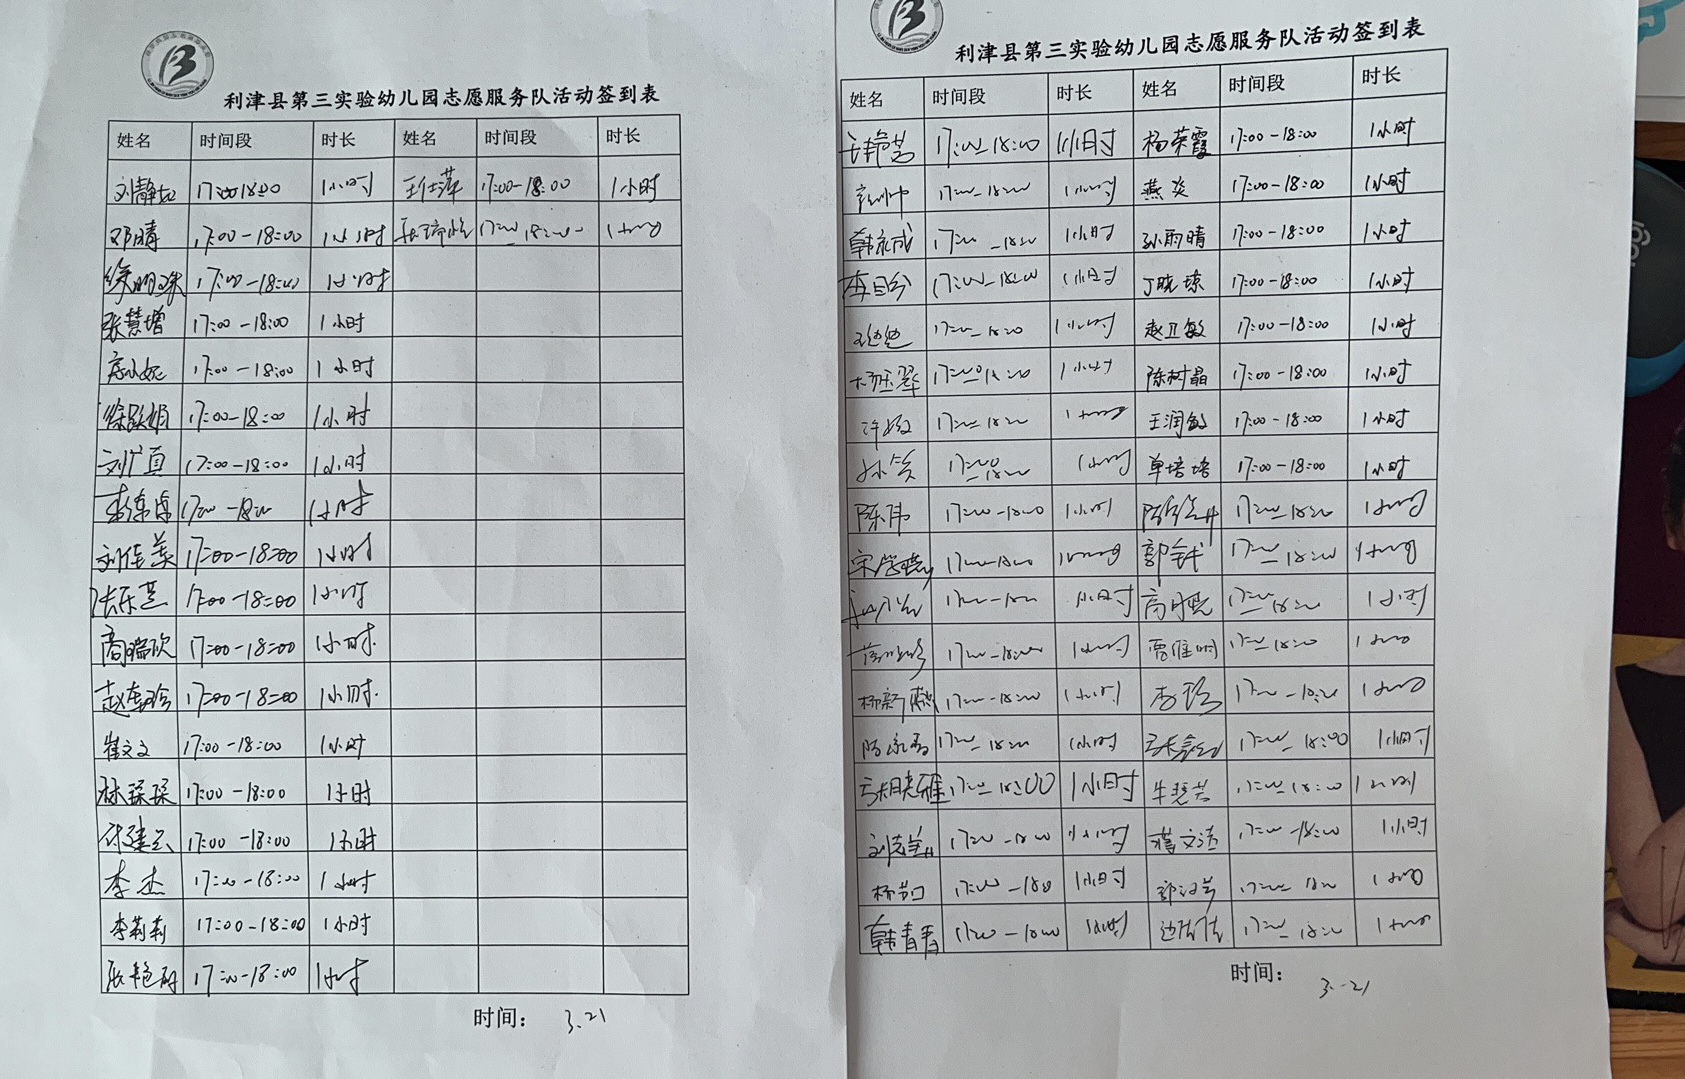 利津县第三实验幼儿园志愿服务队活动签到表
姓名 时间段 时长 姓名 时间段 时长
刘静如 17:00-18:00 1小时 王仕萍 17:00-18:00 1小时
邓晴 17:00-18:00 1小时 17:00-18:00 1小时
徐明珠 17:00-18:00 1小时
张慧增 17:00-18:00 1小时
17:00-18:00 1小时
17:00-18:00 1小时
刘广真 17:00-18:00 1小时
17:00-18:00 1小时
刘佳美 17:00-18:00 1小时
张乐芝 17:00-18:00 1小时
高瑞欣 17:00-18:00 1小时
17:00-18:00 1小时
崔文文 17:00-18:00 1小时
林琛琛 17:00-18:00 1小时
17:00-18:00 1小时
李杰 17:00-18:00 1小时
李莉莉 17:00-18:00 1小时
17:00-18:00 1小时
时间: 3.21
利津县第三实验幼儿园志愿服务队活动签到表
姓名 时间段 时长 姓名 时间段 时长
17:00-18:00 1小时 杨荣霞 17:00-18:00 1小时
17:00-18:00 1小时 燕炎 17:00-18:00 1小时
韩永成 17:00-18:00 1小时 孙雨晴 17:00-18:00 1小时
17:00-18:00 1小时 丁晓琼 17:00-18:00 1小时
17:00-18:00 1小时 赵卫敏 17:00-18:00 1小时
杨玉翠 17:00-18:00 1小时 陈树晶 17:00-18:00 1小时
许敏 17:00-18:00 1小时 王润敏 17:00-18:00 1小时
17:00-18:00 1小时 单培培 17:00-18:00 1小时
陈伟 17:00-18:00 1小时 17:00-18:00 1小时
宋学晓 17:00-18:00 1小时 17:00-18:00 1小时
17:00-18:00 1小时 高月悦 17:00-18:00 1小时
17:00-18:00 1小时 贾雅明 17:00-18:00 1小时
杨新燕 17:00-18:00 1小时 17:00-18:00 1小时
17:00-18:00 1小时 17:00-18:00 1小时
张晓雅 17:00-18:00 1小时 牛慧芸 17:00-18:00 1小时
17:00-18:00 1小时 蒋文洁 17:00-18:00 1小时
17:00-18:00 1小时 17:00-18:00 1小时
韩青青 17:00-18:00 1小时 17:00-18:00 1小时
时间: 3.21